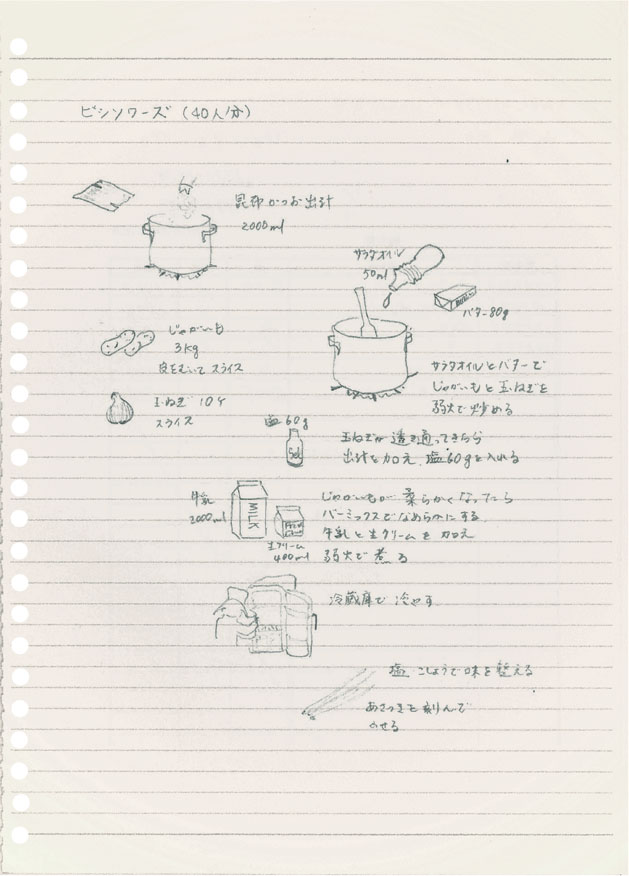 ビシソワーズ (40人分)
昆布かつお出汁
2000ml
サラダオイル
50ml
バター80g
じゃがいも
3kg
皮をむいてスライス
サラダオイルとバターで
じゃがいもと玉ねぎを
弱火で炒める
玉ねぎ 10ケ
スライス
塩 60g
Sel
玉ねぎが透き通ってきたら
出汁を加え、塩60gを入れる
牛乳
2000ml
MILK
生クリーム
400ml
じゃがいもが柔らかくなったら
バーミックスでなめらかにする
牛乳と生クリームを加え
弱火で煮る
冷蔵庫で冷やす
塩、こしょうで味を整える
あさつきを刻んで
のせる